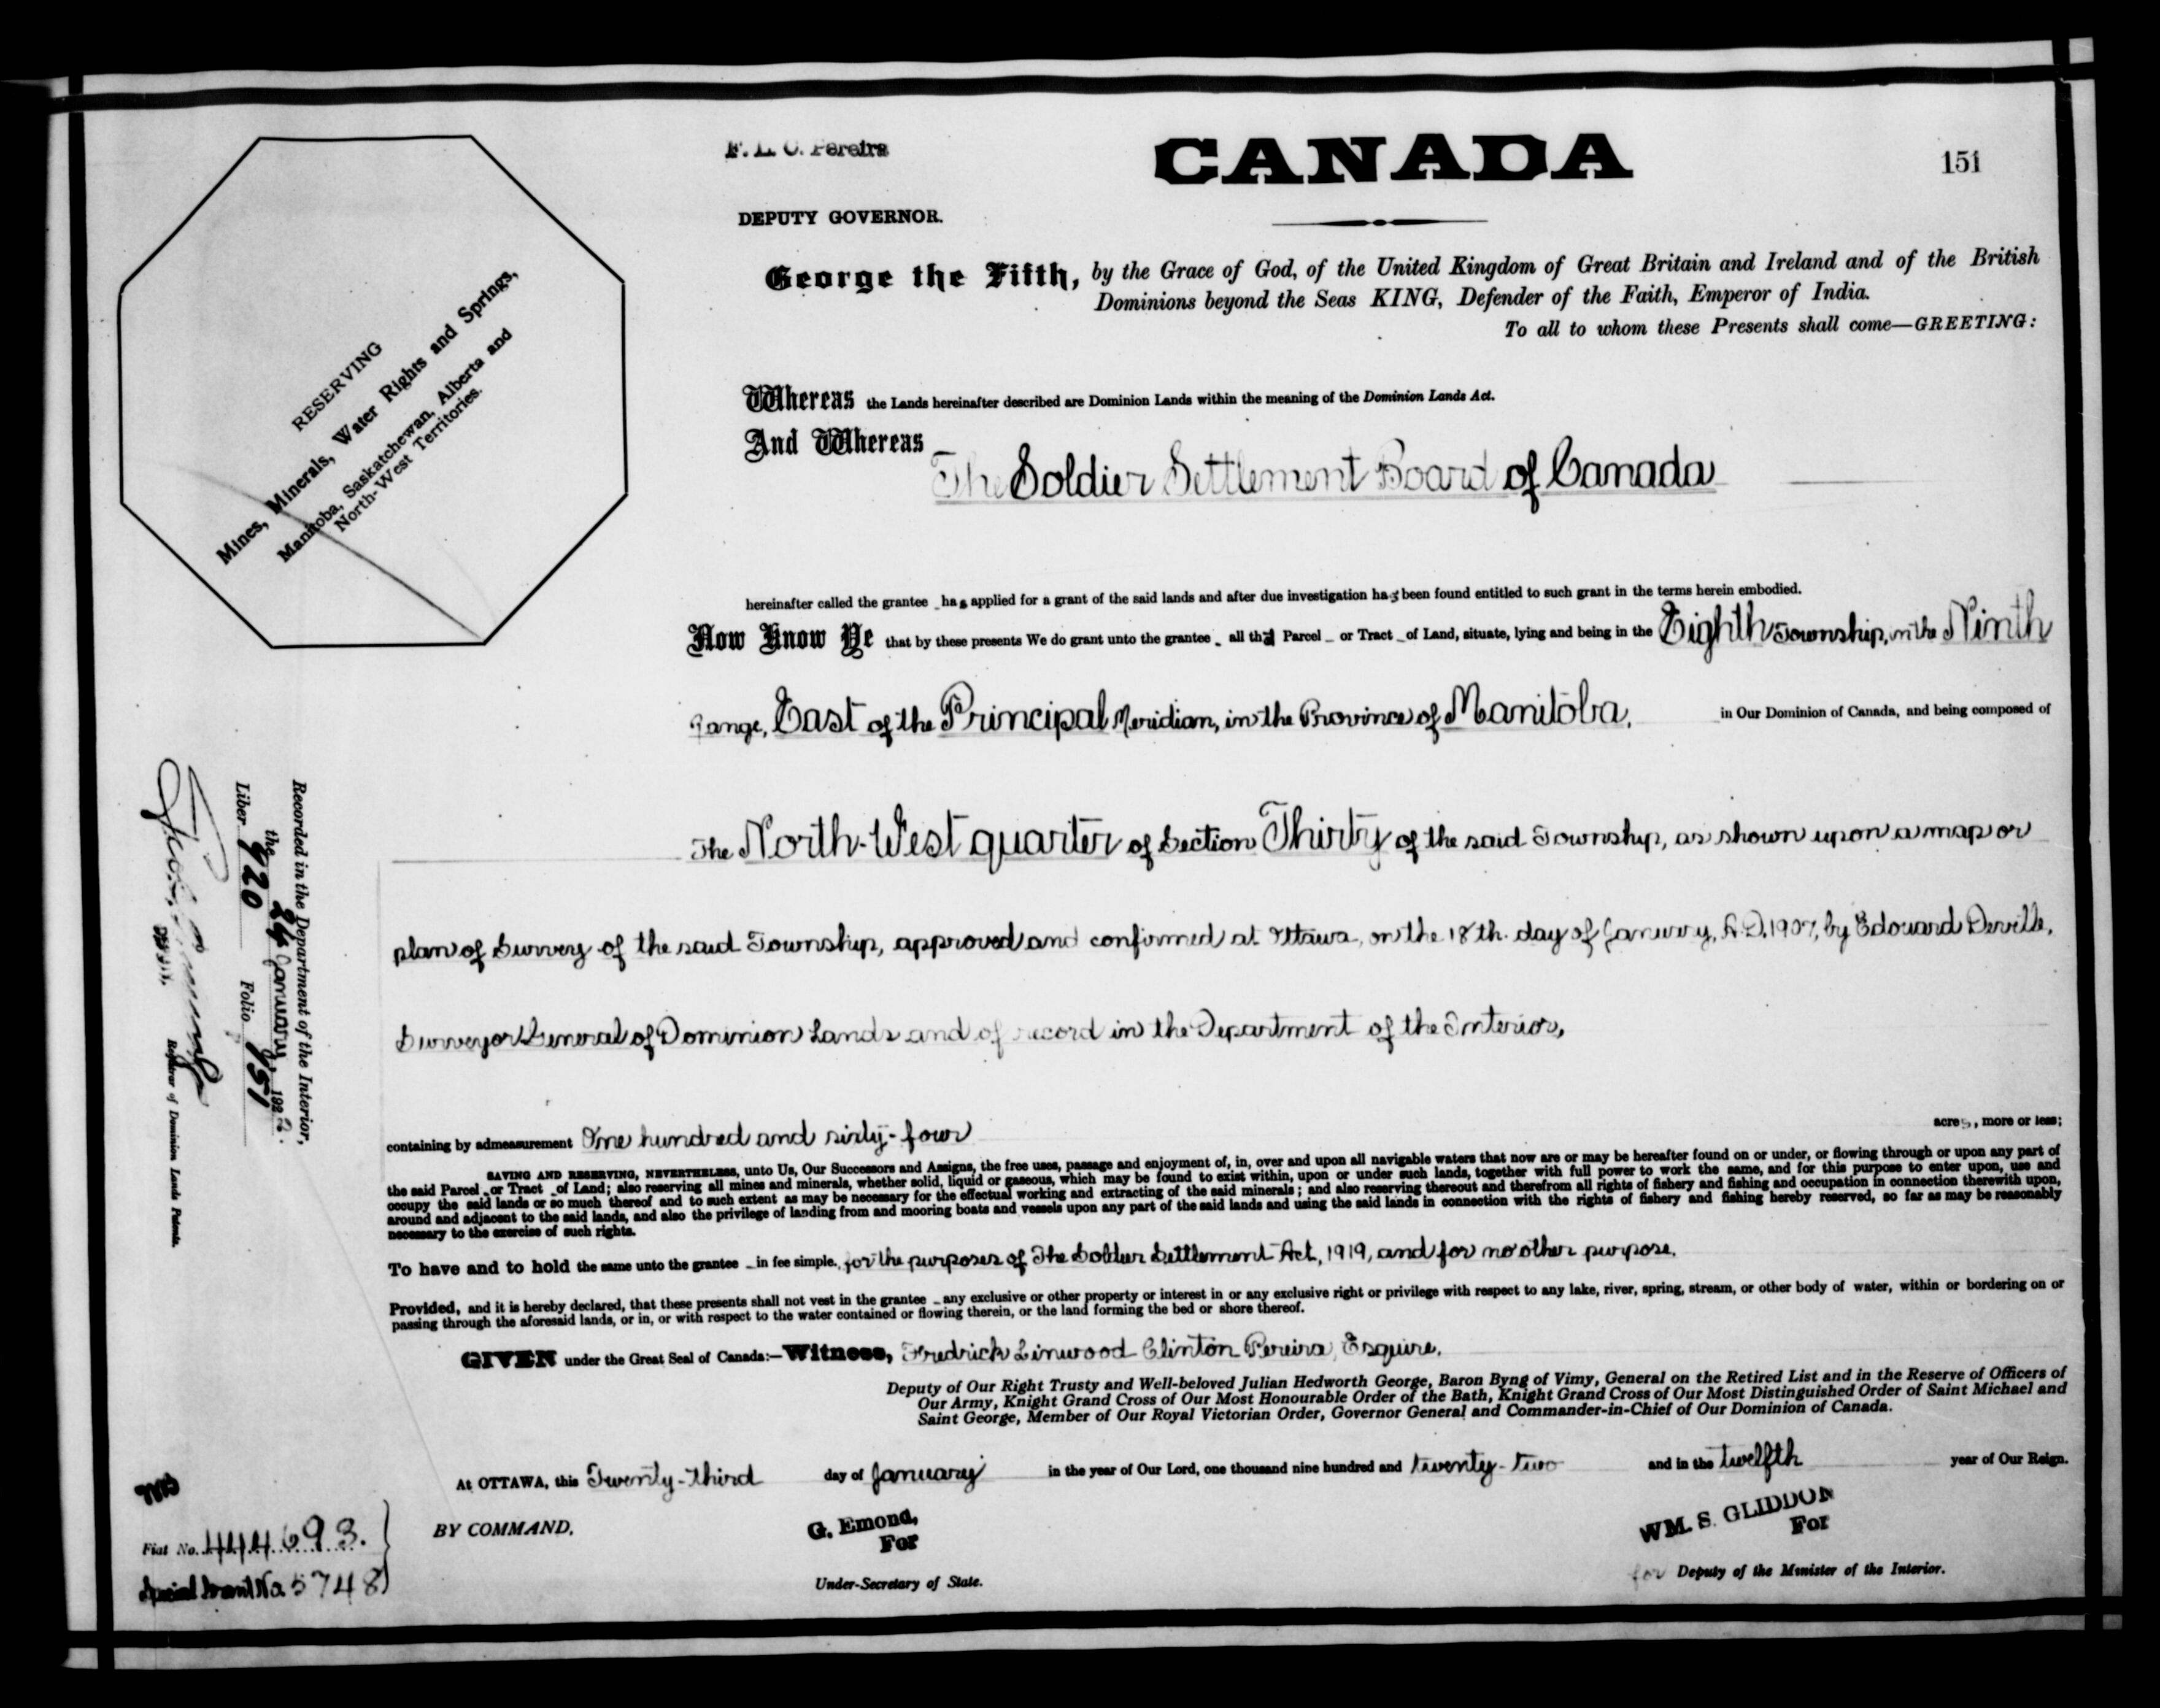 F. L. C. Pereira
CANADA
151
DEPUTY GOVERNOR.
George the Fifth, by the Grace of God, of the United Kingdom of Great Britain and Ireland and of the British
Dominions beyond the Seas KING, Defender of the Faith, Emperor of India.
To all to whom these Presents shall come—GREETING:
RESERVING
Mines, Minerals, Water Rights and Springs,
Manitoba, Saskatchewan, Alberta and
North-West Territories.
Whereas the Lands hereinafter described are Dominion Lands within the meaning of the Dominion Lands Act.
And Whereas
The Soldier Settlement Board of Canada
hereinafter called the grantee has applied for a grant of the said lands and after due investigation has been found entitled to such grant in the terms herein embodied.
Now Know Ye that by these presents We do grant unto the grantee all that Parcel or Tract of Land, situate, lying and being in the Eighth Township, in the Ninth
Range, East of the Principal Meridian, in the Province of Manitoba, in Our Dominion of Canada, and being composed of
The North-West quarter of Section Thirty of the said Township, as shown upon a map or
plan of Survey of the said Township, approved and confirmed at Ottawa, on the 18th. day of January, A.D. 1907, by Edouard Deville,
Surveyor General of Dominion Lands and of record in the Department of the Interior,
containing by admeasurement One hundred and sixty-four acres, more or less;
SAVING AND RESERVING, NEVERTHELESS, unto Us, Our Successors and Assigns, the free uses, passage and enjoyment of, in, over and upon all navigable waters that now are or may be hereafter found on or under, or flowing through or upon any part of
the said Parcel or Tract of Land; also reserving all mines and minerals, whether solid, liquid or gaseous, which may be found to exist within, upon or under such lands, together with full power to work the same, and for this purpose to enter upon, use and
occupy the said lands or so much thereof and to such extent as may be necessary for the effectual working and extracting of the said minerals; and also reserving thereout and therefrom all rights of fishery and fishing and occupation in connection therewith upon,
around and adjacent to the said lands, and also the privilege of landing from and mooring boats and vessels upon any part of the said lands and using the said lands in connection with the rights of fishery and fishing hereby reserved, so far as may be reasonably
necessary to the exercise of such rights.
To have and to hold the same unto the grantee in fee simple. for the purposes of The Soldier Settlement Act, 1919, and for no other purpose.
Provided, and it is hereby declared, that these presents shall not vest in the grantee any exclusive or other property or interest in or any exclusive right or privilege with respect to any lake, river, spring, stream, or other body of water, within or bordering on or
passing through the aforesaid lands, or in, or with respect to the water contained or flowing therein, or the land forming the bed or shore thereof.
GIVEN under the Great Seal of Canada:—Witness, Fredrick Linwood Clinton Pereira, Esquire,
Deputy of Our Right Trusty and Well-beloved Julian Hedworth George, Baron Byng of Vimy, General on the Retired List and in the Reserve of Officers of
Our Army, Knight Grand Cross of Our Most Honourable Order of the Bath, Knight Grand Cross of Our Most Distinguished Order of Saint Michael and
Saint George, Member of Our Royal Victorian Order, Governor General and Commander-in-Chief of Our Dominion of Canada.
At OTTAWA, this Twenty-third day of January in the year of Our Lord, one thousand nine hundred and twenty-two and in the twelfth year of Our Reign.
BY COMMAND,
G. Emond,
For
Under-Secretary of State.
WM. S. GLIDDON
For
for Deputy of the Minister of the Interior.
Recorded in the Department of the Interior,
the 24 January, 1922.
Liber 920 Folio 151
Registrar of Dominion Lands Patents.
Fiat No. 444693.
Special Grant No 5748